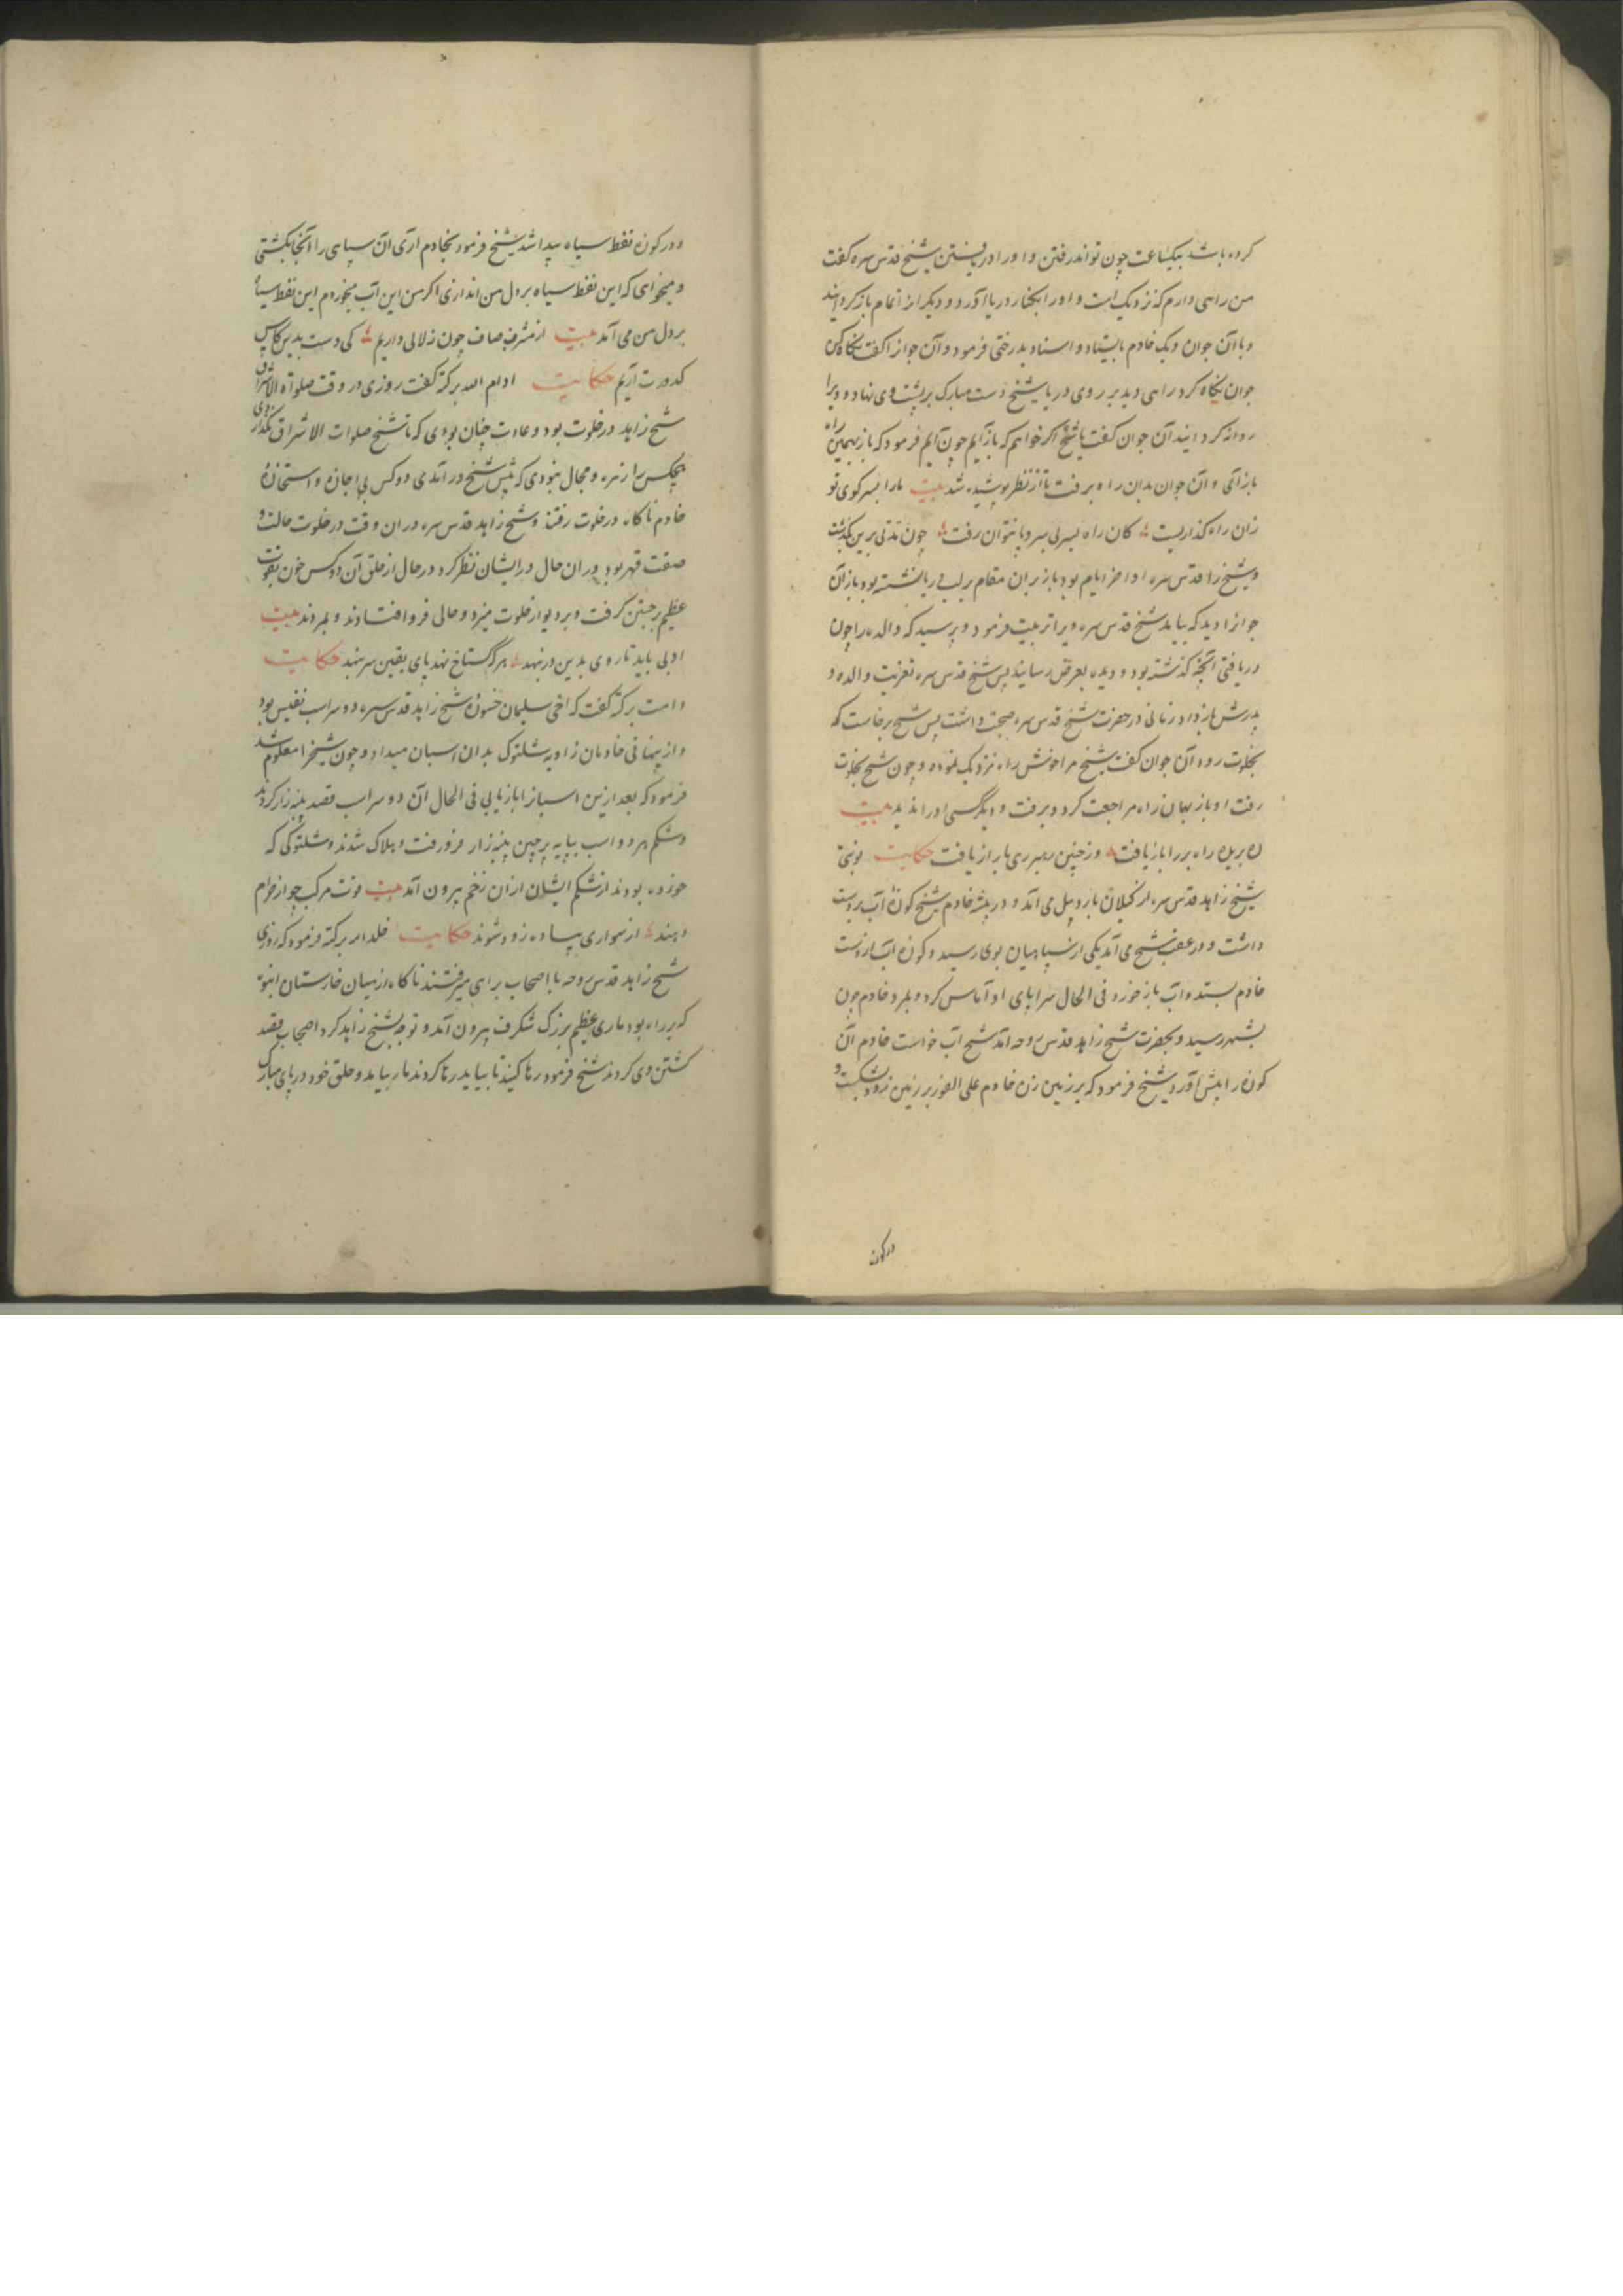 کرده باشد بیکساعت چون تواند رفتن و او را دریافتن شیخ قدس سره گفت
من راهی دارم که نزدیکست و او را بکنار دریا آورد و دیگر از اتمام بازگردانید
و با آن جوان و یک خادم بایستاد و اسناد بدرختی فرمود و آن جوانرا گفت نگاه کن
جوان نگاه کرد راهی دید بر روی دریا شیخ دست مبارک بر پشت وی نهاد و ویرا
روانه گردانید آن جوان گفت یا شیخ اگر خواهم که بازآیم چون آیم فرمود که باز بهمین راه
بازآی و آن جوان بدان راه برفت تا از نظر پوشیده شد بیت ما را بسر کوی تو
زان راه گذاریست کان راه بسر بی سر و پا نتوان رفت چون مدتی برین بگذشت
و شیخ را قدس سره اواخر ایام بود باز بران مقام بر لب دریا نشسته بود باز آن
جوانرا دید که بیامد شیخ قدس سره ویرا تربیت فرمود و پرسید که والده را چون
دریافتی آنچه گذشته بود و دیده بعرض رسانید پس شیخ قدس سره تعزیت والده و
پدرش بازداد زمانی در حضرت شیخ قدس سره صحبت داشت پس شیخ برخاست که
بخلوت رود آن جوان گفت شیخ مرا خوش راه نزدیک نموده و چون شیخ بخلوت
رفت او باز بهمان راه مراجعت کرد و برفت و دیگر کسی او را ندید بیت
ره بریده راه بر را بازیافت وز چنین رهبری باز از یافت حکایت نوبتی
شیخ زاهد قدس سره از گیلان باردبیل می آمد و در بیشه خادم شیخ کوزه آب بر دست
داشت و در عقب شیخ می آمد یکی از سپاهیان بوی رسید و کوزه آب از دست
خادم بستد و آب باز خورد فی الحال سراپای او آماس کرد و بمرد خادم چون
بشهر رسید و بحضرت شیخ زاهد قدس روحه آمد شیخ آب خواست خادم آن
کوزه را پیش آورد شیخ فرمود که بر زمین زن خادم علی الفور بر زمین زد و بشکست و
در کوزه
و در کوزه نقط سیاه پیدا شد شیخ فرمود بخادم آری آن سپاهی را آنجا بکشتی
و میخواهی که این نقط سیاه بر دل من اندازی اگر من این آب میخوردم این نقط سیاه
بر دل من می آمد بیت از مشرب صاف چون زلالی داریم کی دست بدین کاس
کدورت آریم حکایت ادام الله برکته گفت روزی در وقت صلوة الاشراق
شیخ زاهد در خلوت بود و عادت چنان بودی که تا شیخ صلوات الاشراق نگذاردی
هیچکس را زهره و مجال نبودی که پیش شیخ درآمدی دو کس بی اجازه و استجازهٔ
خادم ناگاه در خلوت رفتند و شیخ زاهد قدس سره دران وقت در خلوت حالت و
صفت قهر بود دران حال درایشان نظر کرد در حال از حلق آن دو کس خون بقوت
عظیم برجستن گرفت و بر دیوار خلوت میزد و حالی فروافتادند و بمردند بیت
ادبی باید تا روی بدین در بنهد هرکه گستاخ نهد پای یقین سر بنهد حکایت
دامت برکته گفت که اخی سلیمان خسورهٔ شیخ زاهد قدس سره دو سر اسب نفیس بود
و از پنهانی خادمان زاویه شلتوک بدان اسبان میداد و چون شیخ را معلوم شد
فرمود که بعد ازین اسبانرا بازنیابی فی الحال آن دو سر اسب قصد پنبه زار کردند
و شکم هر دو اسب بپایه پرچین پنبه زار فرو رفت و هلاک شدند و شلتوکی که
خورده بودند از شکم ایشان ازان زخم بیرون آمد بیت قوت مرکب چو از حرام
دهند از سواری پیاده زود شوند حکایت خلد الله برکته فرمود که روزی
شیخ زاهد قدس روحه با اصحاب براهی میرفتند ناگاه از میان خارستان انبوه
که بر راه بود ماری عظیم بزرگ شگرف بیرون آمد و توجه بشیخ زاهد کرد اصحاب قصد
کشتن وی کردند شیخ فرمود رها کنید تا بیاید رها کردند مار بیامد و حلق خود در پای مبارک